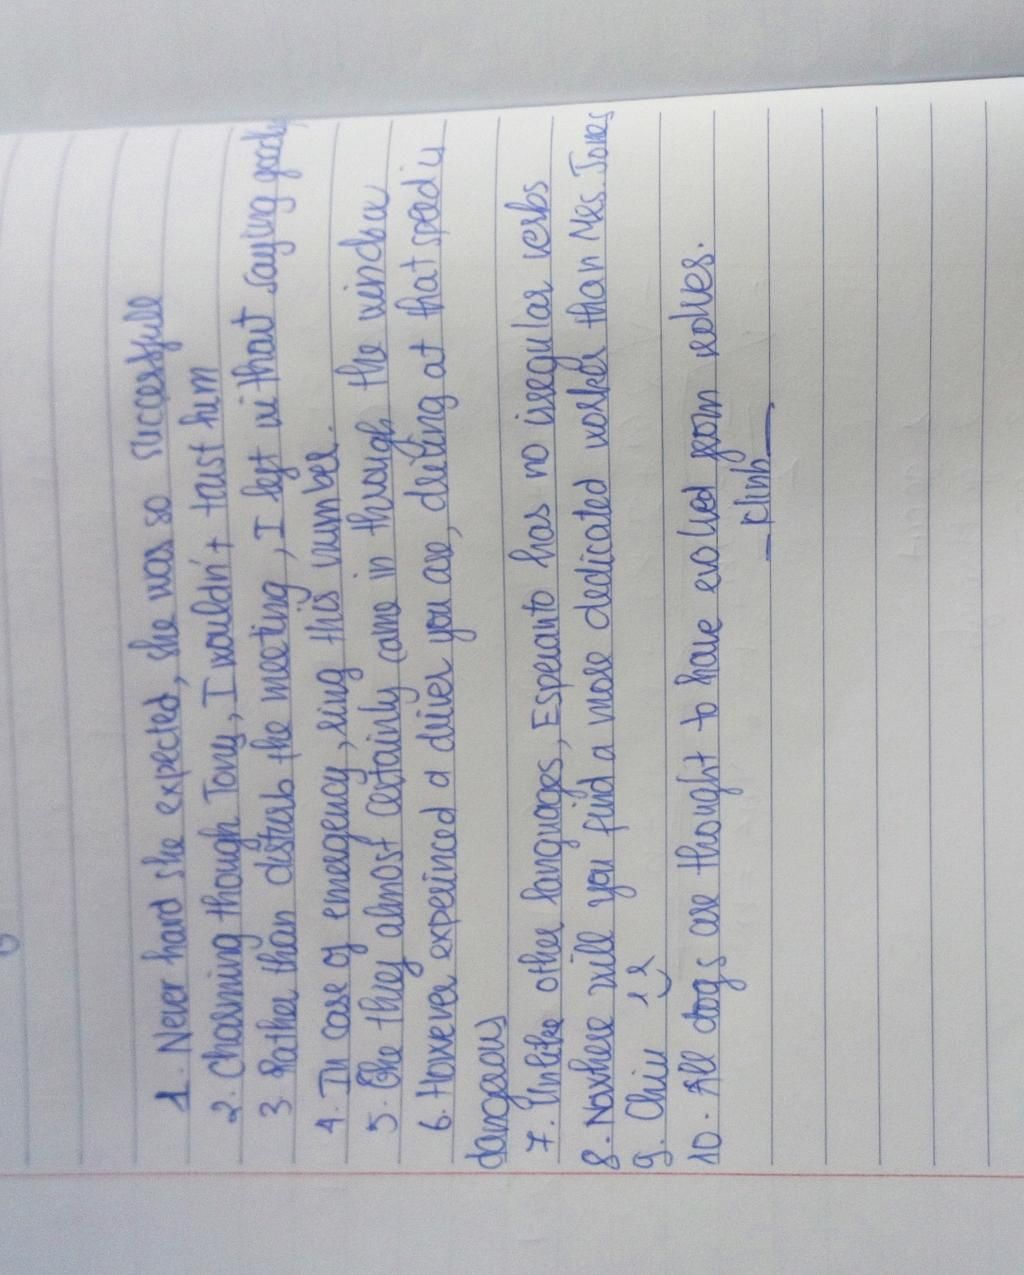 1. Never hard she expected, she was so successfull
2. Charming though Tony, I wouldn't trust him
3. Rather than disturb the meeting, I left without saying goodb
4. In case of emergency, ring this number.
5. The thief almost certainly came in through the window
6. However experinced a driver you are, driving at that speed is
dangerous
7. Unlike other languages, Esperanto has no irregular verbs
8. Nowhere will you find a more dedicated worker than Mrs. Jones
9. Chịu
10. All dogs are thought to have evolved from wolves.